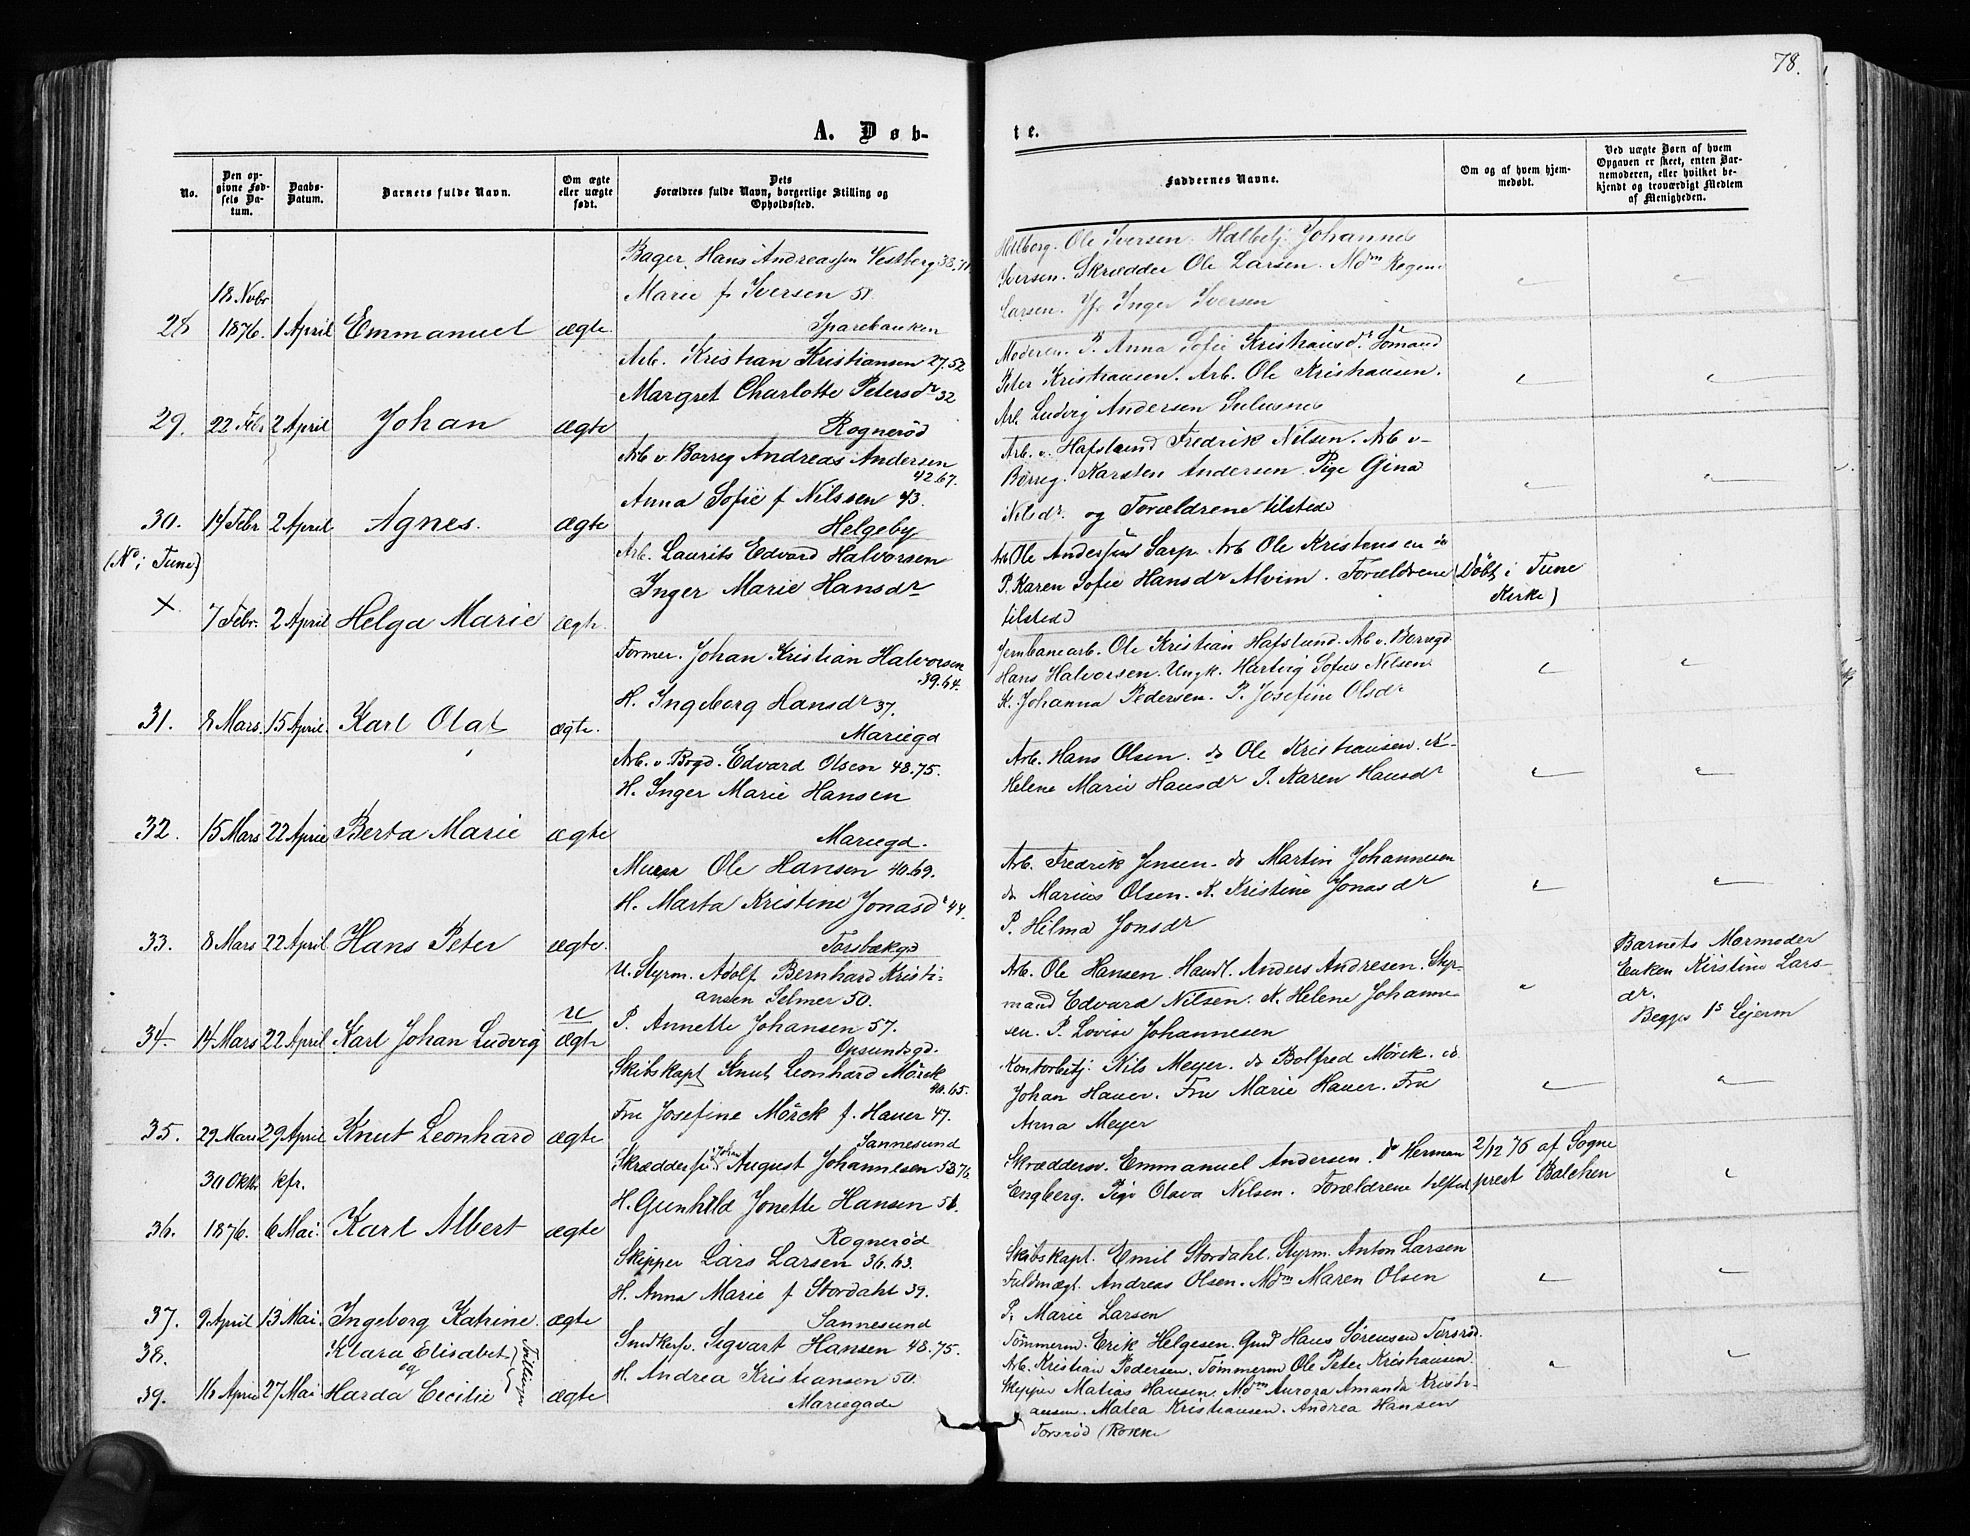 78.
A. Døb-
te.
No.
Den op-
givne Fød-
sels Da-
tum.
Daabs-
Datum.
Barnets fulde Navn.
Om ægte
eller uægte
født.
Dets
Forældres fulde Navn, borgerlige Stilling og
Opholdssted.
Faddernes Navne.
Om og af hvem hjem-
medøbt.
Ved uægte Børn af hvem
Opgaven er skeet, enten Bar-
nemoderen, eller hvilket be-
kjendt og troværdigt Medlem
af Menigheden.
28 18 Novbr
1876. 1 April Emmanuel ægte
Bager. Hans Andreassen Vestberg 38.
Marie f Iversen 51
Sparebanken
Ole Iversen. Johannes
Iversen. Skrædder Ole Larsen. Mdm
Larsen. Jfr Inger Iversen
29. 22 Feb. 2 April Johan ægte
Arb. Kristian Kristiansen 27.52
Margret Charlotte Petersdr 32
Rognerød
Moderen. P. Anna Sofie Kristiansdr Sømand
Peter Kristiansen. Arb. Ole Kristiansen.
Arb. Ludvig Andersen
30. 14 Febr. 2 April Agnes. ægte
Arb v. Borreg Andreas Andersen
42.67.
Anna Sofie f Nilssen 43.
Helgeby
Arb. v. Hafslund Fredrik Nilsen. Arb v-
Borreg. Karsten Andersen. Pige Gina
Nilsdr. og Forældrene tilstede
(No i Tune)
x 7 Febr. 2 April Helga Marie ægte
Arb. Laurits Edvard Halvorsen
Inger Marie Hansdr
Arb Ole Andersen Sarp. Arb Ole Kristensen do
P. Karen Sofie Hansdr Alvim. Forældrene
tilstede
(Døbt i Tune
Kirke)
31. 8 Mars. 15 April. Karl Olaf ægte.
Former. Johan Kristian Halvorsen
39.64.
H. Ingeborg Hansdr 37.
Mariegd
Jernbanearb. Ole Kristian Hafslund. Arb v. Borregd
Hans Halvorsen. Ungk. Hartvig Sofus Nilsen
K. Johanna Pedersen. P. Josefine Olsdr
32. 15 Mars 22 April Berta Marie ægte
Arb. v. Brgd. Edvard Olsen 48.75.
H. Inger Marie Hansen
Mariegd.
Arb. Hans Olsen. do Ole Kristiansen. K-
Helene Marie Hansdr P. Karen Hansdr
33. 8 Mars 22 April Hans Peter ægte.
Murer Ole Hansen 40.69.
H. Marta Kristine Jonasdr 44.
Torsbækgd
Arb. Fredrik Jensen. do Martin Johannesen
do Marius Olsen. K. Kristine Jonasdr
P. Hilma Jonsdr
34. 14 Mars 22 April Karl Johan Ludvig u
ægte
U. Styrm. Adolf Bernhard Kristi-
ansen Selmer 50.
P. Annette Johansen 57.
Opsundgd.
Arb. Ole Hansen. Handl. Anders Andresen. Styr-
mand Edvard Nilsen. K. Helene Johanne-
sen. P. Lovise Johannesen
Barnets Mormoder
Enken Kirstine Lars-
dr.
Begges 1s Lejerm
35. 29 Mars 29 April Knut Leonhard ægte
Skibskapt Knut Leonhard Mörck
40.65.
Fru Josefine Mörck f. Hauer 47.
Sannesund
Kontorbetj. Nils Meyer. do Bolfred Mörck. do
Johan Hauer. Fru Marie Hauer. Fru
Anna Meyer
36. 30 Oktbr kfr.
1876. 6 Mai: Karl Albert ægte
Skrædder August Johannesen 53.76.
H. Gunhild Jonette Hansen 56.
Rognerød
Skræddersv. Emmanuel Andersen. do Herman
Engberg. Pige Olava Nilsen. Forældrene tilsted
2/12 76 af Sogne
prest Balchen
37. 9 April 13 Mai. Ingeborg Katrine. ægte
Skipper Lars Larsen 36.63.
H. Anna Marie f Stordahl 39.
Sannesund
Skibskapt. Emil Stordahl. Styrm. Anton Larsen
Fuldmægt. Andreas Olsen. Mdm Maren Olsen
P. Marie Larsen
38.
39. 16 April 27 Mai Klara Elisabet
og
Harda Cecilie
Tvillinger
ægte
Snedkersv. Sigvart Hansen 48.75.
H. Andrea Kristiansen 50.
Mariegade
Tömmerm. Erik Helgesen. Gmd Hans Sörensen Torsrød.
Arb. Kristian Pedersen. Tömmerm Ole Peter Kristiansen.
Skipper Matias Hansen. Mdm Aurora Amanda Kristi-
ansen. Matea Kristiansen. Andrea Hansen
Torsrød (Rokke